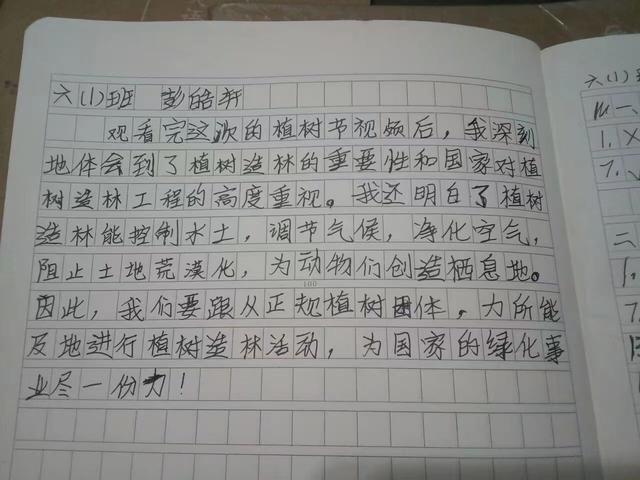 六(1)班 彭皓轩
观看完这次的植树节视频后，我深刻
地体会到了植树造林的重要性和国家对植
树造林工程的高度重视。我还明白了植树
造林能控制水土，调节气候，净化空气，
阻止土地荒漠化，为动物们创造栖息地。
100
因此，我们要跟从正规植树团体，力所能
及地进行植树造林活动，为国家的绿化事
业尽一份力！
六(1)班
一、
1. X
7. √
二
1.
7.